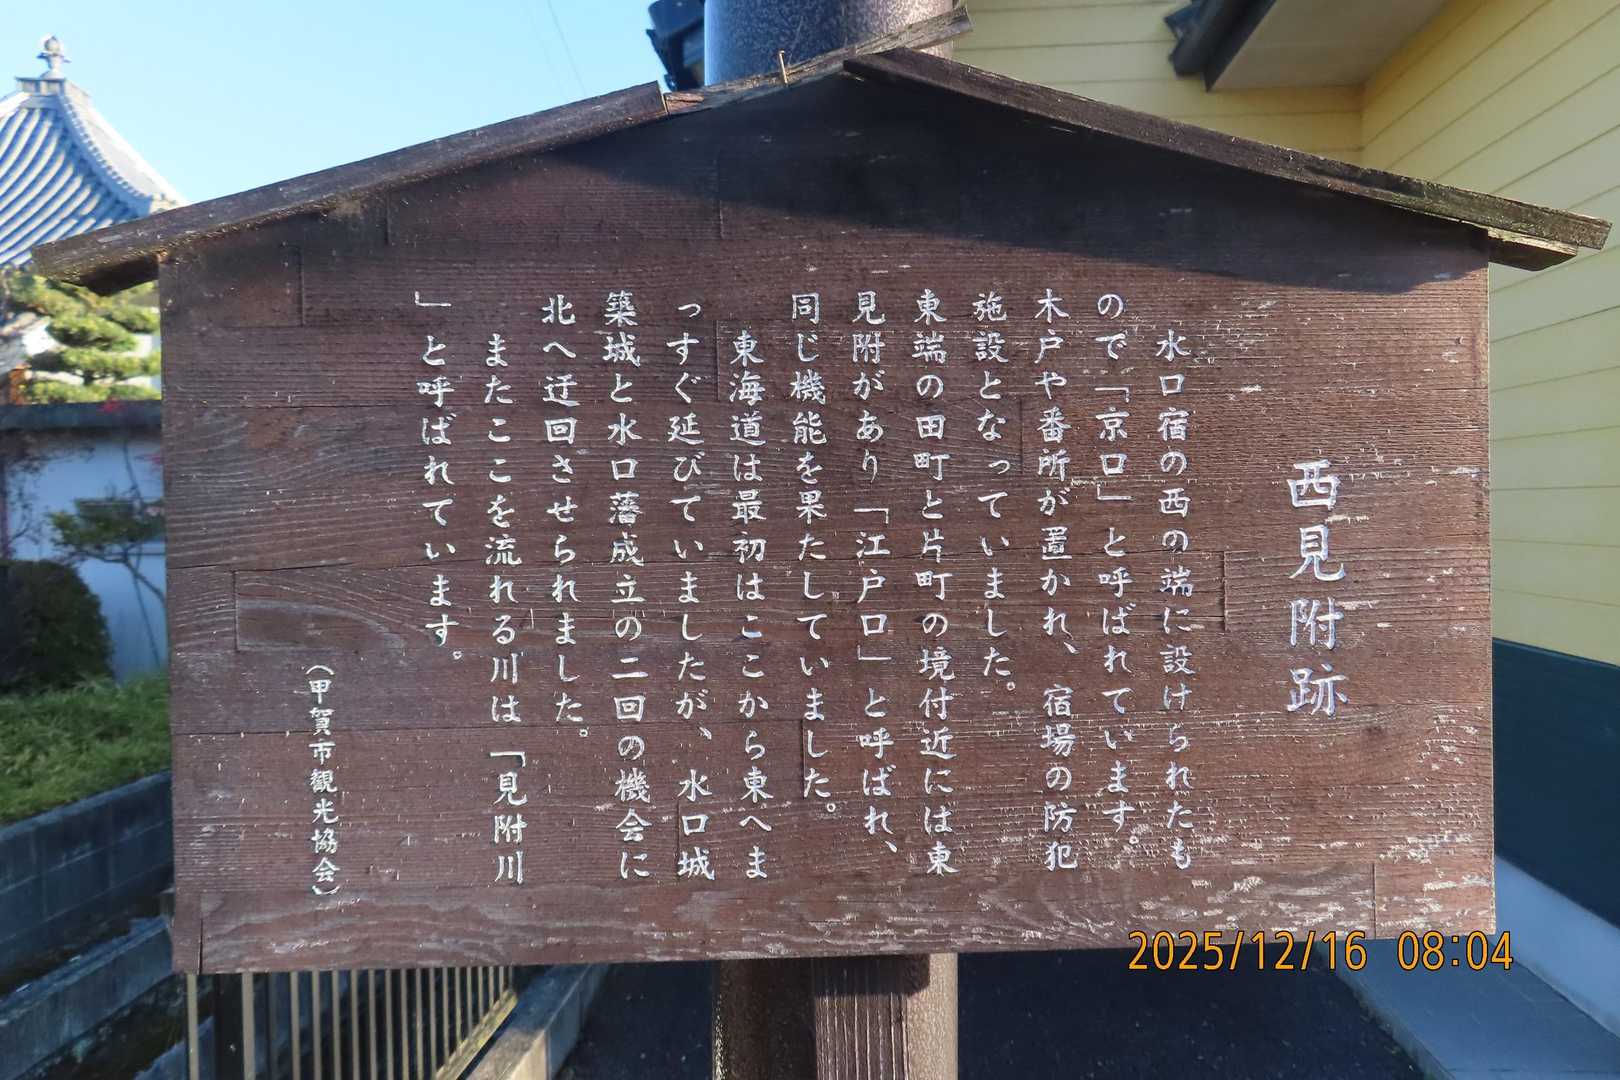 西見附跡
水口宿の西の端に設けられたも
ので「京口」と呼ばれています。
木戸や番所が置かれ、宿場の防犯
施設となっていました。
東端の田町と片町の境付近には東
見附があり「江戸口」と呼ばれ、
同じ機能を果たしていました。
東海道は最初はここから東へま
っすぐ延びていましたが、水口城
築城と水口藩成立の二回の機会に
北へ迂回させられました。
またここを流れる川は「見附川
」と呼ばれています。
（甲賀市観光協会）
2025/12/16 08:04